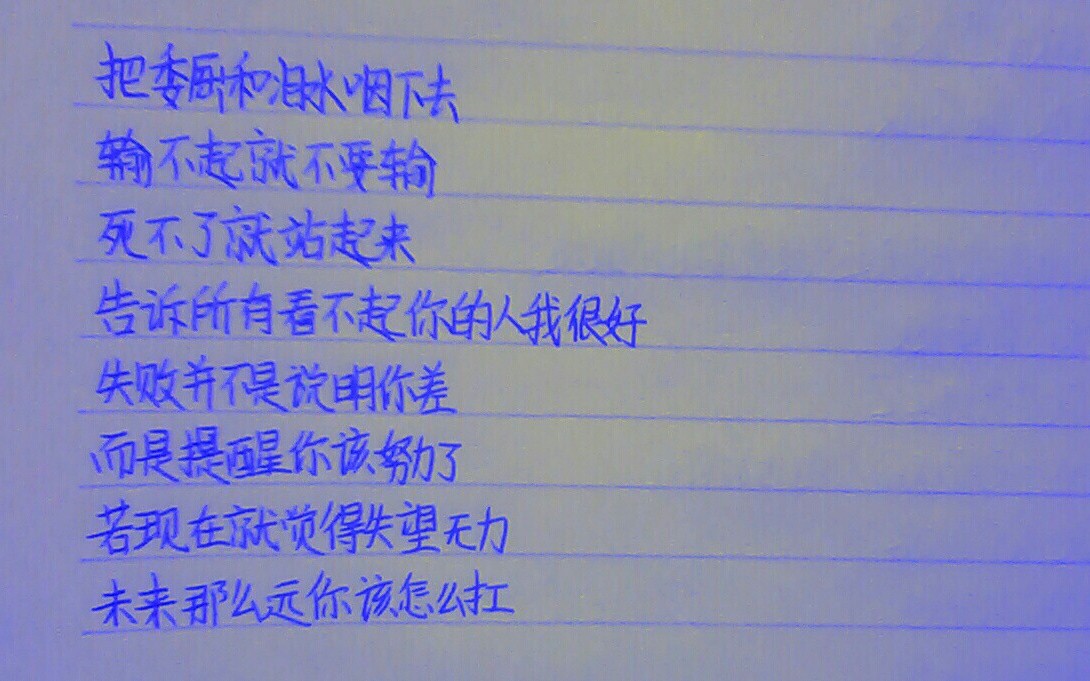 把委屈和泪水咽下去
输不起就不要输
死不了就站起来
告诉所有看不起你的人我很好
失败并不是说明你差
而是提醒你该努力了
若现在就觉得失望无力
未来那么远你该怎么扛